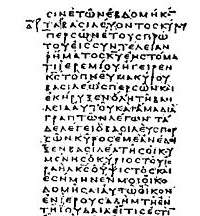 ϹΙΝΕΤΩΝΕΒΔΟΜΗΚ
ΤΑΒΑϹΙΛΕΥΟΝΤΟϹΚΥΡΥ
ΠΕΡϹΩΝΕΤΟΥϹΠΡΩ
ΤΟΥΕΙϹϹΥΝΤΕΛΕΙΑΝ
ΡΗΜΑΤΟϹΚΥΕΝϹΤΟΜΑ
ΤΙΙΕΡΕΜΙΟΥΗΓΕΙΡΕΝ
ΚϹΤΟΠΝΕΥΜΑΚΥΡΟΥ
ΒΑϹΙΛΕΩϹΠΕΡϹΩΝΚΑΙ
ΕΚΗΡΥΞΕΝΟΛΗΤΗΒΑϹΙ
ΛΕΙΑΑΥΤΟΥΚΑΙΑΜΑΔΙΑ
ΓΡΑΠΤΩΝΛΕΓΩΝΤΑ
ΔΕΛΕΓΕΙΟΒΑϹΙΛΕΥϹΠΕΡ
ϹΩΝΚΥΡΟϹΕΜΕΑΝΕΔΕΙ
ΞΕΝΒΑϹΙΛΕΑΤΗϹΟΙΚΟΥ
ΜΕΝΗϹΟΚΥΡΙΟϹΤΟΥΙϹ
ΡΑΗΛΚϹΟΥΨΙϹΤΟϹΚΑΙ
ΕϹΗΜΗΝΕΝΜΟΙΟΙΚΟ
ΔΟΜΗϹΑΙΑΥΤΩΟΙΚΟΝ
ΕΝΙΕΡΟΥϹΑΛΗΜΤΗΕΝ
ΤΗΙΟΥΔΑΙΑΕΙΤΙϹΕϹΤΙ